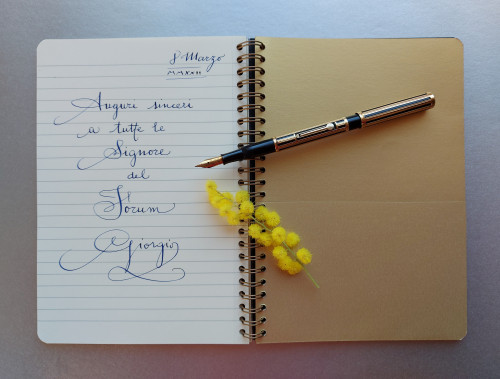 8 Marzo
MMXXII
Auguri sinceri
a tutte le
Signore
del
Forum
Giorgio